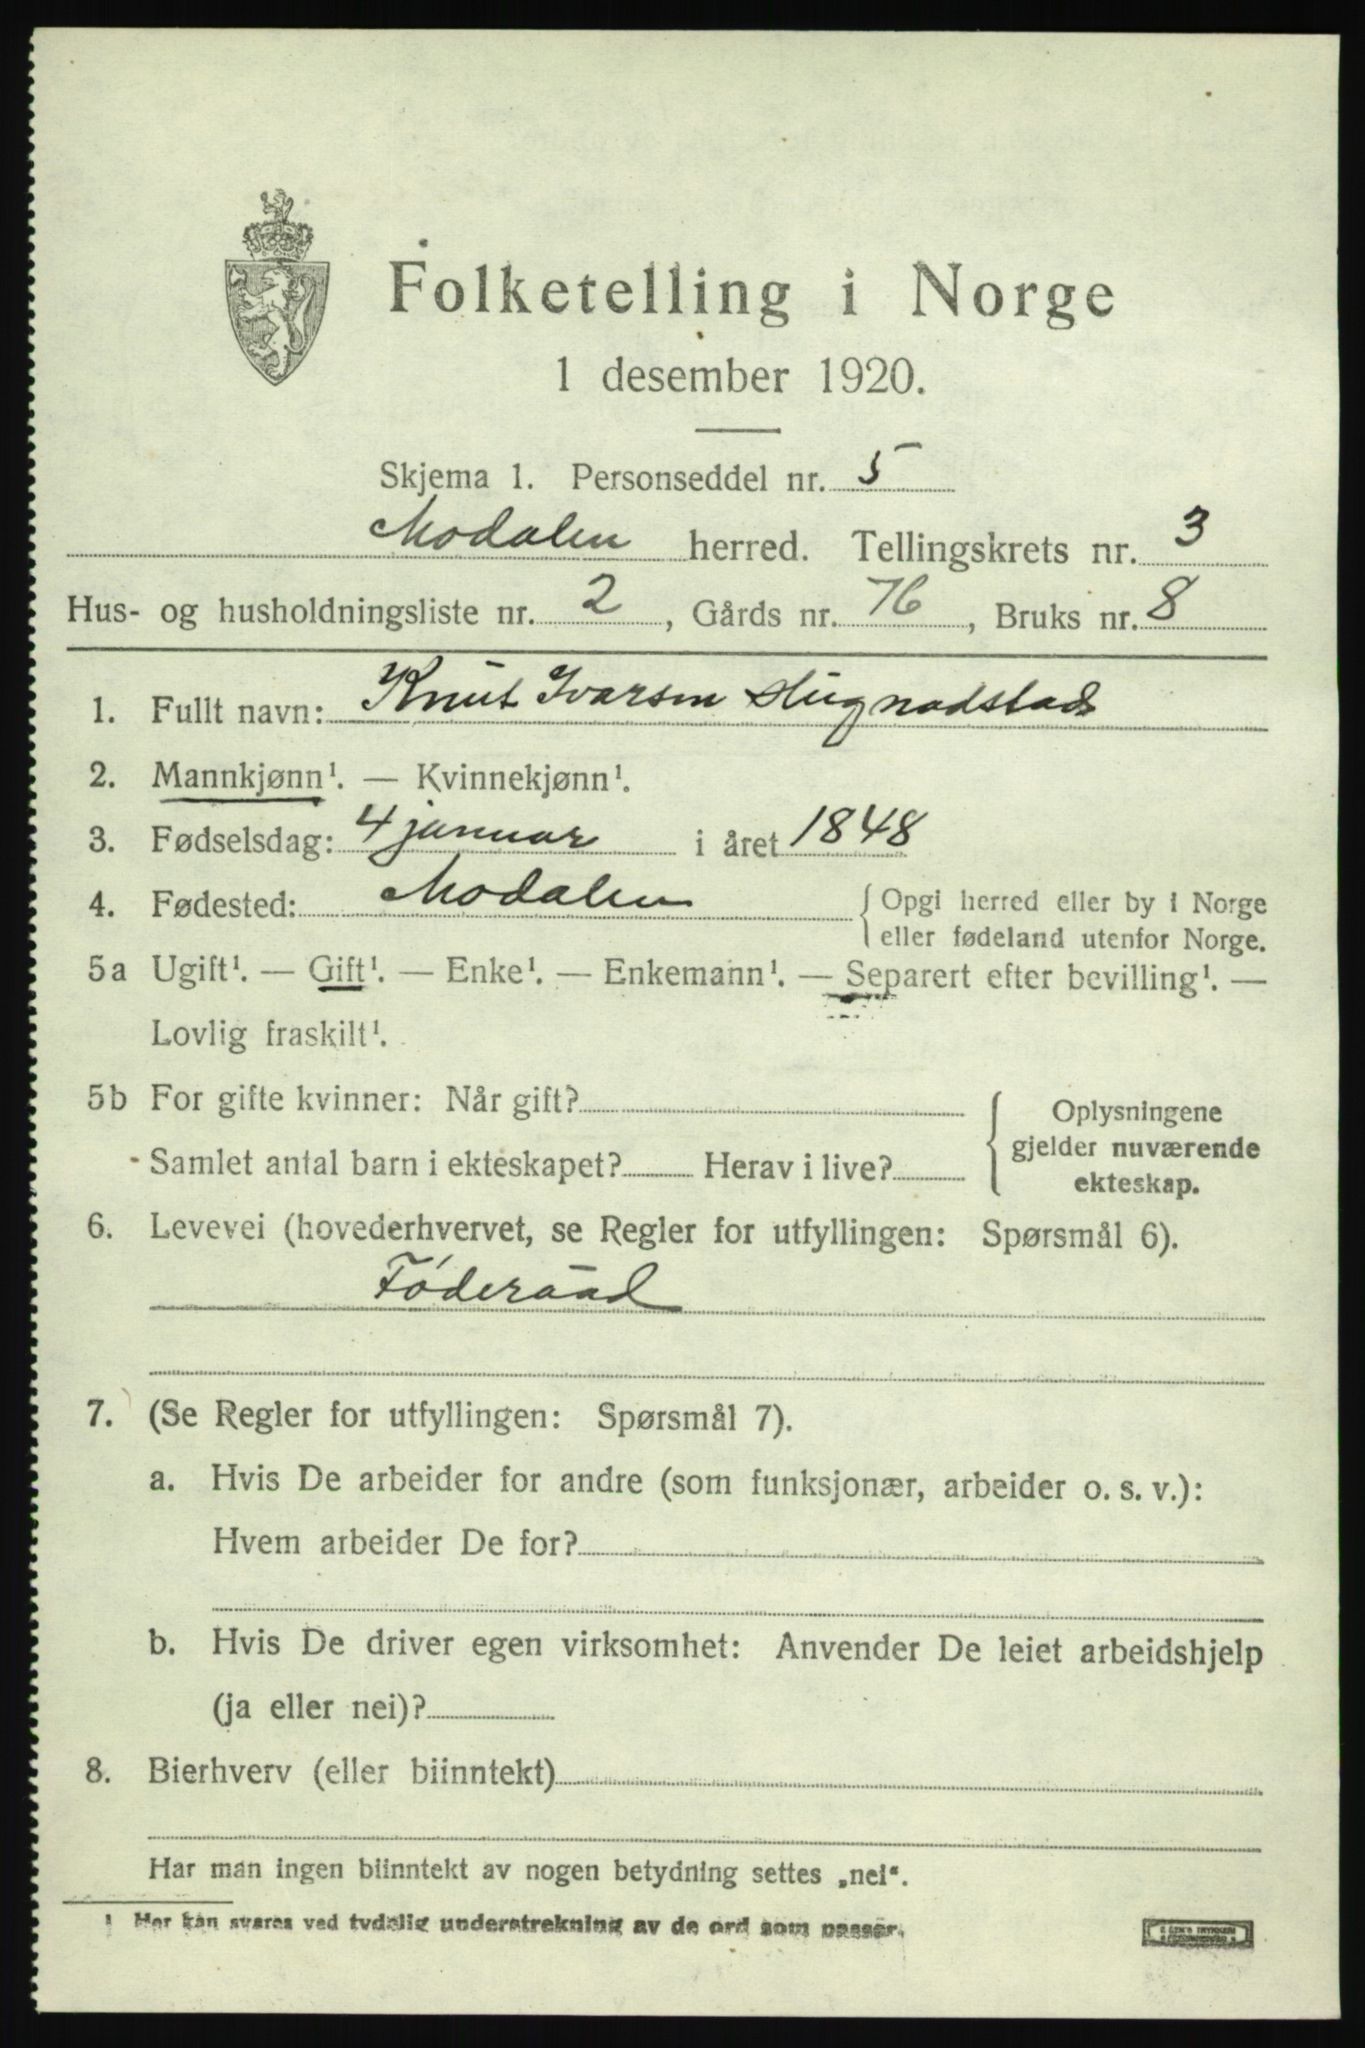 Folketelling i Norge
1 desember 1920.
Skjema 1. Personseddel nr. 5
Modalen herred. Tellingskrets nr. 3
Hus- og husholdningsliste nr. 2, Gårds nr. 76, Bruks nr. 8
1. Fullt navn: Knut Ivarsen Hugnadstad
2. Mannkjønn¹. — Kvinnekjønn¹.
3. Fødselsdag: 4 januar i året 1848
4. Fødested: Modalen { Opgi herred eller by i Norge
eller fødeland utenfor Norge.
5a Ugift¹. — Gift¹. — Enke¹. — Enkemann¹. — Separert efter bevilling¹. —
Lovlig fraskilt¹.
5b For gifte kvinner: Når gift?
Samlet antal barn i ekteskapet? Herav i live?
{ Oplysningene
gjelder nuværende
ekteskap.
6. Levevei (hovederhvervet, se Regler for utfyllingen: Spørsmål 6).
Føderaad
7. (Se Regler for utfyllingen: Spørsmål 7).
a. Hvis De arbeider for andre (som funksjonær, arbeider o. s. v.):
Hvem arbeider De for?
b. Hvis De driver egen virksomhet: Anvender De leiet arbeidshjelp
(ja eller nei)?
8. Bierhverv (eller biinntekt)
Har man ingen biinntekt av nogen betydning settes „nei“.
1 Her kan svares ved tydelig understrekning av de ord som passer.